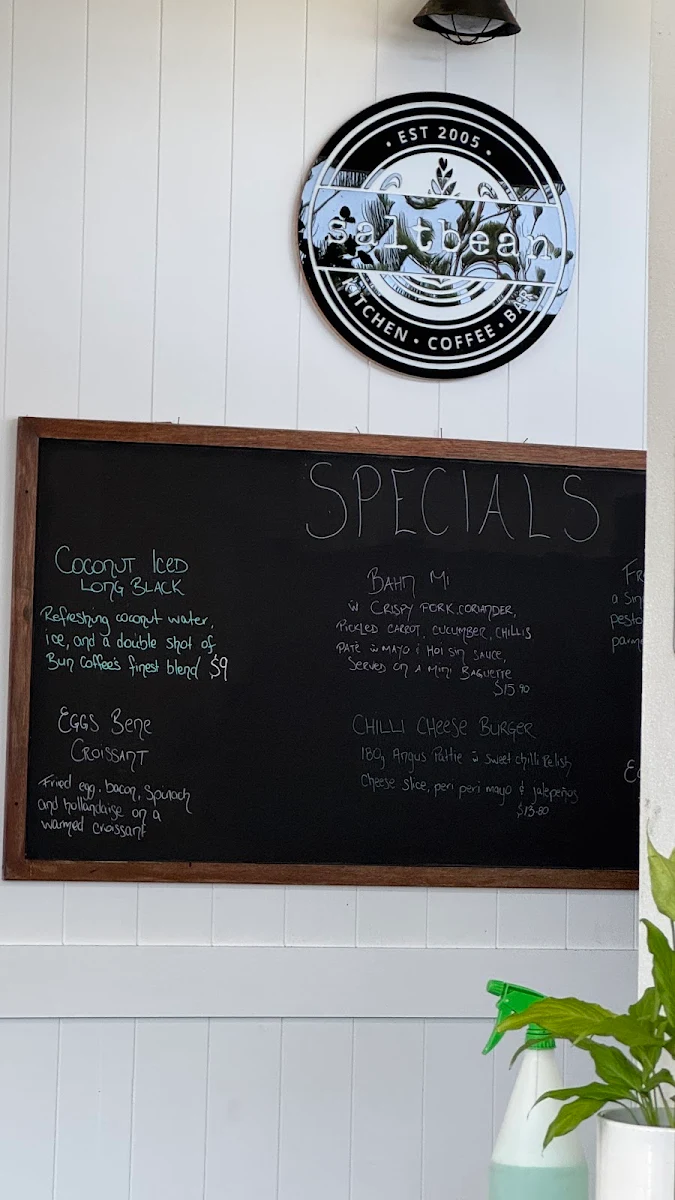 • EST 2005 •
saltbean
KITCHEN • COFFEE • BAR
SPECIALS
COCONUT ICED
LONG BLACK
Refreshing coconut water,
ice, and a double shot of
Bun Coffee's finest blend $9
EGGS BENE
CROISSANT
Fried egg, bacon, Spinach
and hollandaise on a
warmed croissant
BAHN MI
W CRISPY PORK, CORIANDER,
PICKLED CARROT, CUCUMBER, CHILLIS
PATE W MAYO & HOI SIN SAUCE,
SERVED ON A MINI BAGUETTE
$15.90
CHILLI CHEESE BURGER
180g Angus Pattie w sweet chilli Relish
Cheese slice, peri peri mayo & jalepeños
$13.80
a
pesto